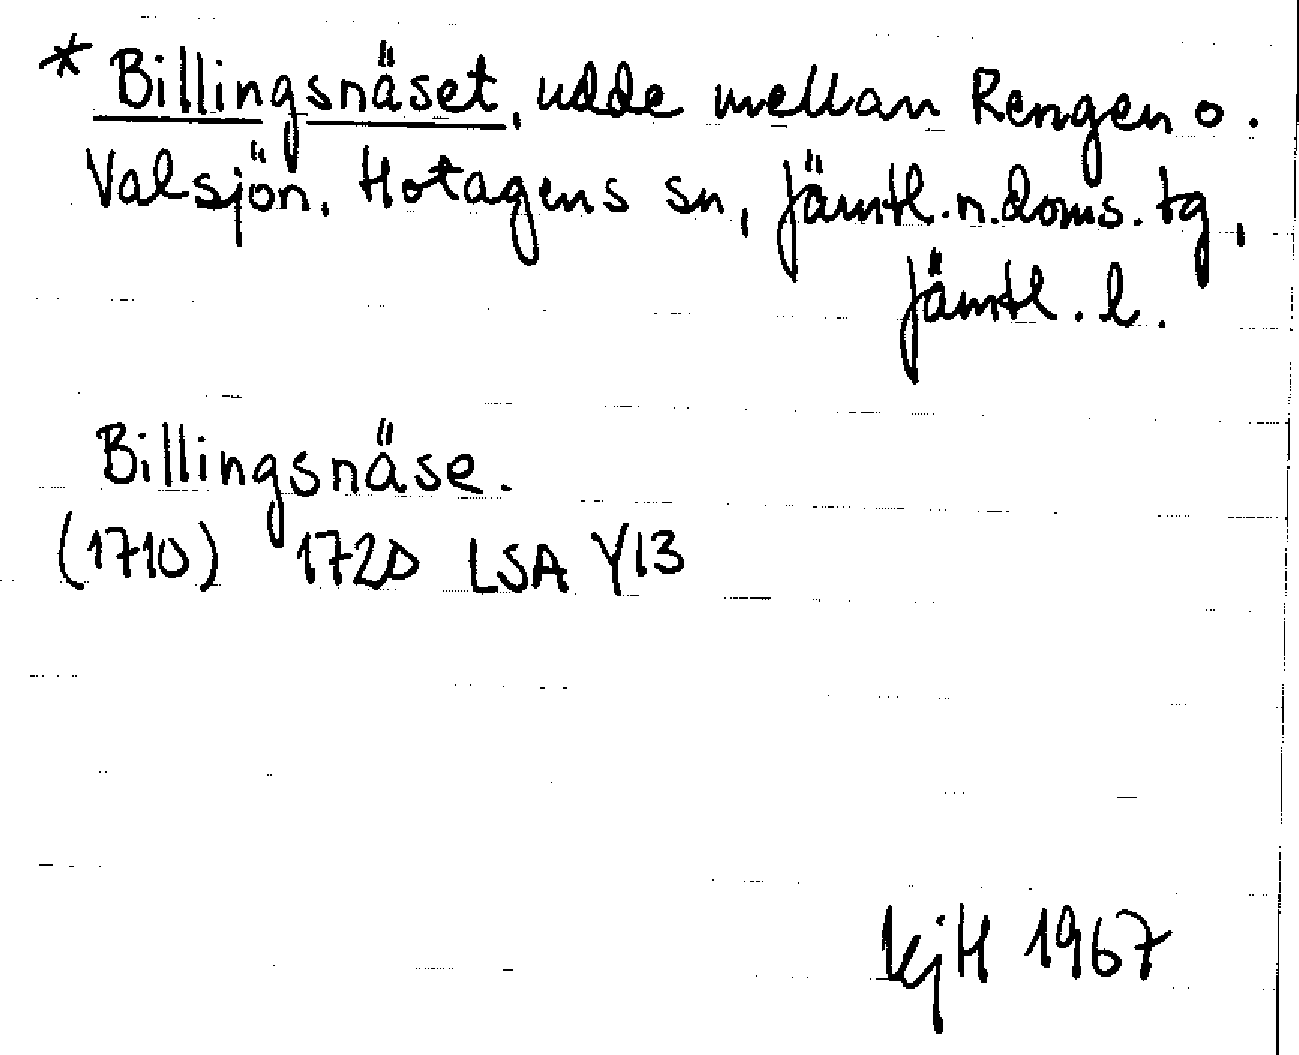 * Billingsnäset, udde mellan Rengen o.
Valsjön. Hotagens sn, Jämtl. n. doms. tg,
Jämtl. l.
Billingsnäse.
(1710) 1720 LSA Y13
KjH 1967